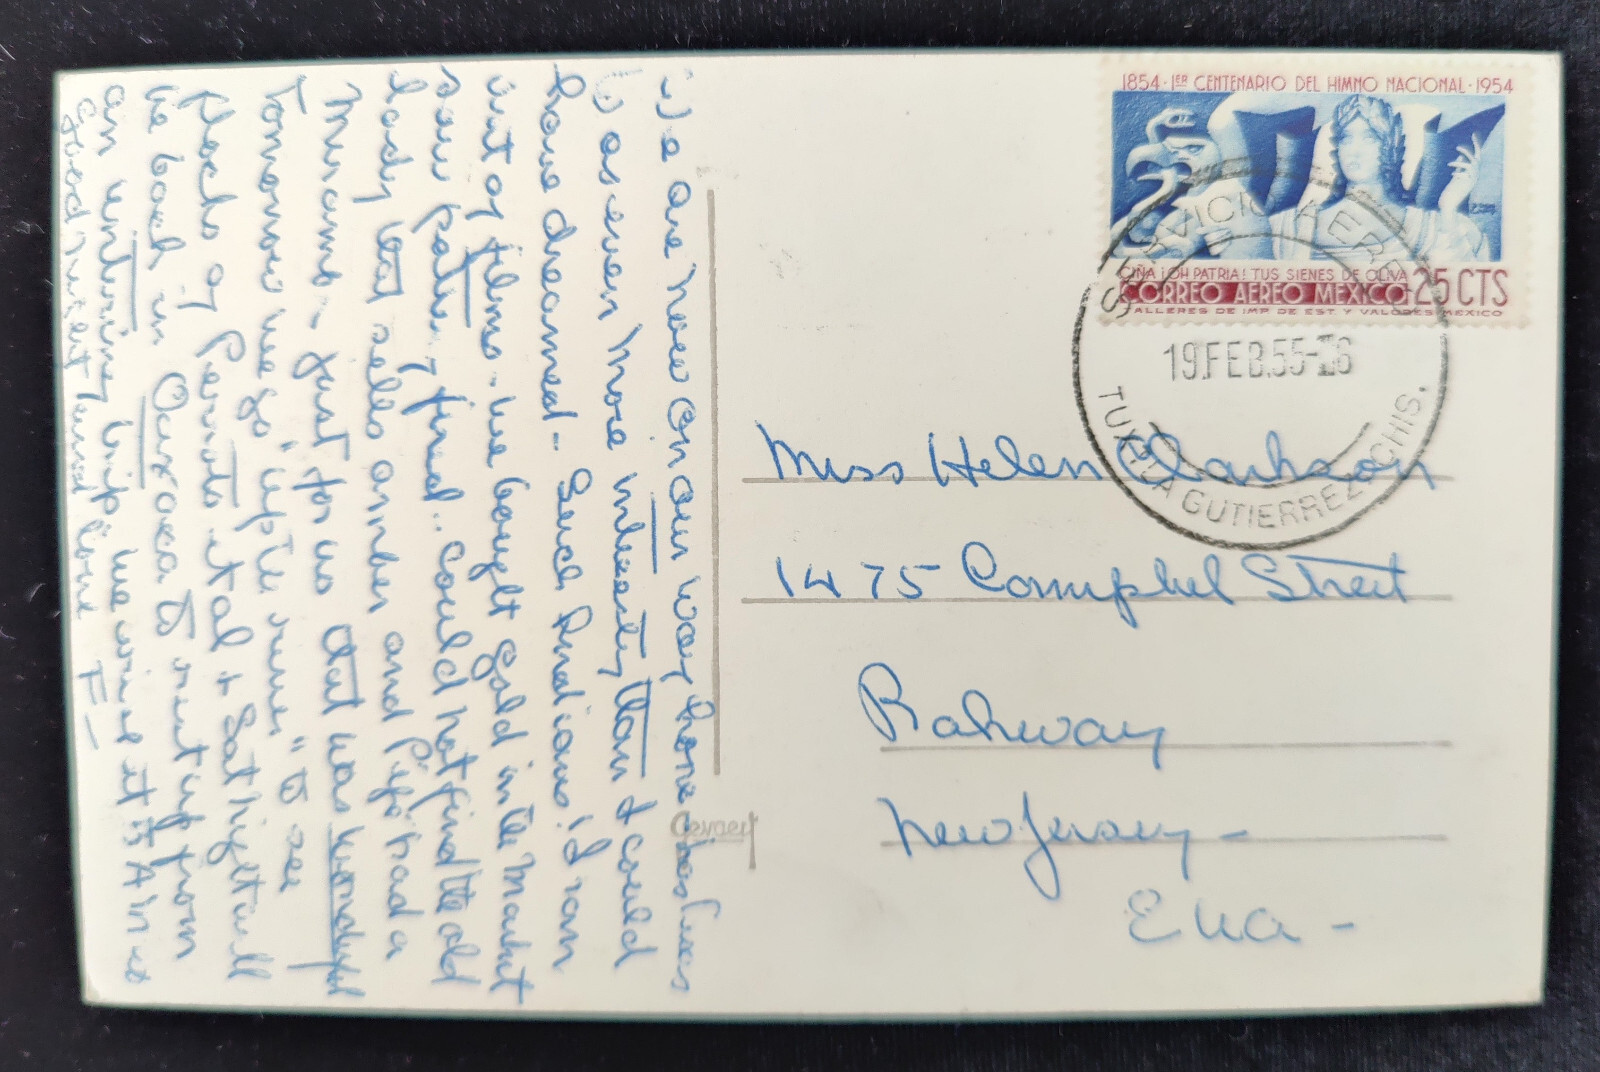 We are now on our way home - it has been
as even more interesting than I could
have dreamed - Such Indians! I ran
out of films. We bought gold in the market
saw patio, y find.. Could not find the old
lady that sells amber and Pepe had a
Mircamb. Just for us that was wonderful
Tomorrow we go "up the river" to see
flocks of Parrots et al + Sat night will
be back in Oaxaca to rest up from
an untiring trip we wind it 5 A in us
Good night and love F-
1854·1ER CENTENARIO DEL HIMNO NACIONAL·1954
CIÑA ¡OH PATRIA! TUS SIENES DE OLIVA
CORREO AEREO MEXICO 25 CTS
TALLERES DE IMP. DE EST. Y VALORES-MEXICO
SERVICIO AEREO
19.FEB.55
TUXTLA GUTIERREZ, CHIS.
Miss Helen Clarkson
1475 Campbel Street
Rahway
New Jersey -
E UA -
Gevaert